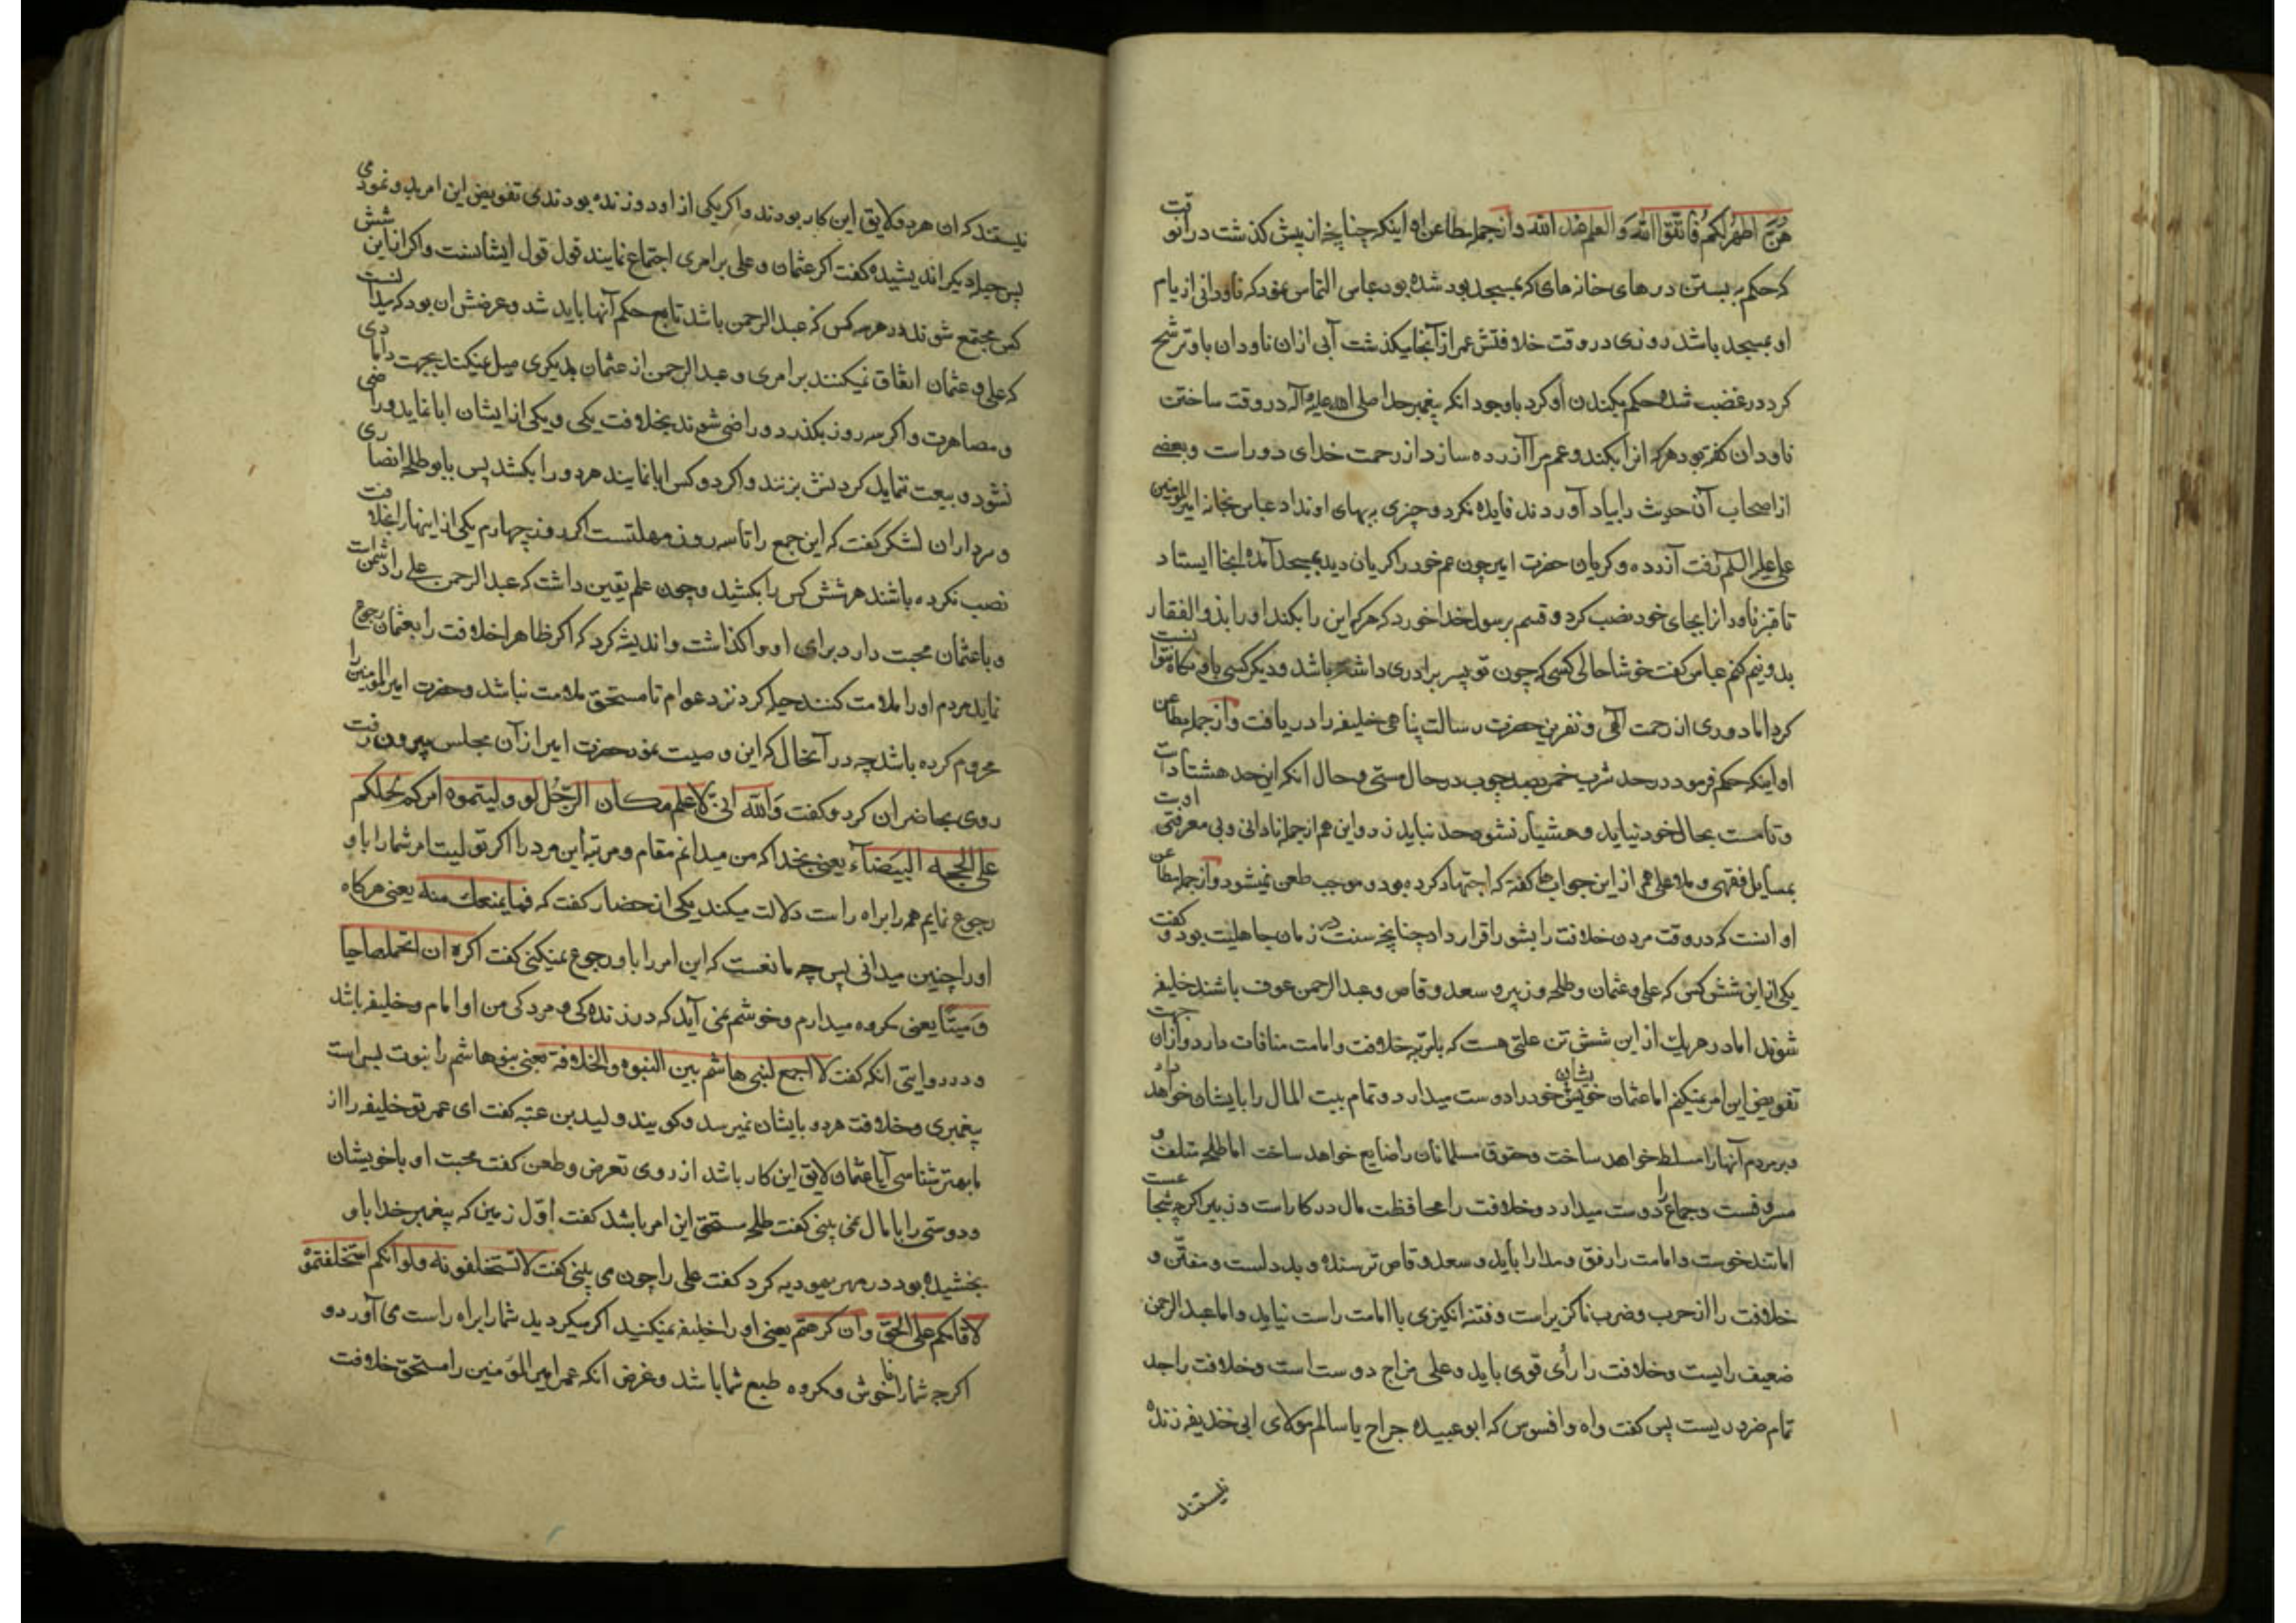 هُنَّ اطهرُ لکمُ فَاتقوا اللهَ وَ العلم عند الله و از جمله مطاعن او اینکه چنانچه از پیش کذشت در آنوقت
که حکم به بستن درهای خانه های که بمسجد بود شده بود عباس التماس نمود که ناودانی از بام
او بمسجد باشد روزی در وقت خلافتش عمر از آنجا میکذشت آبی ازان ناودان باو ترشح
کرد در غضب شده حکم بکندن او کرد با وجود انکه پیغمبر خدا صلی الله علیه و آله در وقت ساختن
ناودان کفته بود هرکه انرا بکند و عم مرا آزرده سازد از رحمت خدای دور است و بعضے
از اصحاب آن حدیث را بیاد آوردند فایده نکرد و چزی ببهای او نداد عباس بخانه امیر المؤمنین
علی علیه السلم رفت آزرده و کریان حضرت امیر چون عم خود را کریان دید بمسجد آمده انجا ایستاد
تا قنبر ناودانرا بجای خود نصب کرد و قسم برسول خدا خورد که هرکه این را بکند او را بذو الفقار
بدو نیم کنم عباس کفت خوشا حالی کسی که چون تو پسر برادری داشته باشد و دیکر کسی باو نکاه نتوانست
کرد اما دوری از رحمت آلهی و نفرین حضرت رسالت پناهی خلیفه را دریافت و از جمله مطاعن
او اینکه حکم فرمود در حد شرب خمر بصد چوب در حال مستی و حال انکه این حد هشتاد است
و تا مست بحال خود نیاید و هشیار نشود حد نباید زد و این هم از جمله نادانی و بی معرفتی اوست
بمسایل فقهی و ملا علی هم از این جواب ها کفته که اجتهاد کرده بود و موجب طعن نمیشود و از جمله مطاعن
او انست که در وقت مردن خلافت را بشورا قرار داد چنانچه سنت در زمان جاهلیت بود و کفت
یکی از این شش کس که علی و عثمان و طلحه و زبیر و سعد وقاص و عبد الرحمن عوف باشند خلیفه
شوند اما در هر یک از این شش تن علتی هست که بامرتبه خلافت و امامت منافات دارد و ازان جهت
تفویض این امر نمیکنم اما عثمان خویشان خود را دوست میدارد و تمام بیت المال را بایشان خواهد داد
و بر مردم آنها را مسلط خواهد ساخت و حقوق مسلمانان را ضایع خواهد ساخت اما طلحه متلف و
مسرفست و جماع را دوست میدارد و خلافت را محافظت مال در کار است و زبیر اکرچه شجاعست
اما تندخوست و امامت را رفق و مدارا باید و سعد وقاص ترسنده و بد دلست و مفتّن و
خلافت را از حرب و ضرب ناکزیر است و فتنه انکیزی با امامت راست نیاید و اما عبد الرحمن
ضعیف رایست و خلافت را رأی قوی باید و علی مزاج دوست است و خلافت را جد
تمام ضروریست پس کفت واه وا افسوس که ابو عبیده جراح یا سالم مولای ابی خذیفه زنده
نیستند
نیستند که ان هر دو لایق این کار بودند و اکر یکی از ان دو زنده بودندی تفویض این امر بدو نمودمی
پس حیله دیکر اندیشیده کفت اکر عثمان و علی بر امری اجتماع نمایند قول قول ایشانست و اکر از این شش
کس مجتمع شوند در هر سه کس که عبد الرحمن باشد تابع حکم آنها باید شد و غرضش ان بود که میدانست
که علی و عثمان اتفاق نمیکنند بر امری و عبد الرحمن از عثمان بدیکری میل نمیکند بجهت دامادی
و مصاهرت و اکر سه روز بکذرد و راضی شوند بخلافت یکی و یکی از ایشان ابا نماید و راضی
نشود و بیعت ننماید کردنش بزنند و اکر دو کس ابا نمایند هر دو را بکشد پس بابو طلحه انصاری
و سرداران لشکر کفت که این جمع را تا سه روز مهلتست اکر روز چهارم یکی از اینها را بخلافت
نصب نکرده باشند هر شش کس را بکشید و چون علم یقین داشت که عبد الرحمن علی را دشمن است
و با عثمان محبت دارد برای او واکذاشت و اندیشه کرد که اکر ظاهرا خلافت را بعثمان رجوع
نماید مردم او را ملامت کنند حیله کرد نزد عوام تا مستحق ملامت نباشد و حضرت امیر المومنین را
محروم کرده باشد چه در آنحال که این وصیت نمود حضرت امیر از آن مجلس بیرون رفت
روی بحاضران کرد و کفت وَالله انی لاعلم مکان الرّجُل لو ولیتموه امرکم یحملکم
علی المحجه البیضاء یعنی بخدا که من میدانم مقام و مرتبه این مرد را اکر تولیت امر شما را باو
رجوع نمایم همه را براه راست دلالت میکند یکی از حضار کفت که فما یمنعک منه یعنی هرکاه
او را چنین میدانی پس چه مانعست که این امر را باو رجوع نمیکنی کفت اکره ان اتحملها حیا
وَ میتاً یعنی مکروه میدارم و خوشم نمی آید که در زنده کی و مردکی من او امام و خلیفه باشد
و در روایتی انکه کفت لا اجمع لبنی هاشم بین النبوه والخلافة یعنی بنو هاشم را نبوت بس است
پیغمبری و خلافت هر دو بایشان نمیرسد و کویند ولید بن عتبه کفت ای عمر تو خلیفه را از
ما بهتر شناسی آیا عثمان لایق این کار باشد از روی تعرض و طعن کفت محبت او با خویشان
و دوستی را با مال نمی بینی کفت طلحه مستحق این امر باشد کفت اوّل زمین که پیغمبر خدا باو
بخشیده بود در مهر یهودیه کرد کفت علی را چون می بینی کفت لا تستخلفونه ولو انکم استخلفتموْ
لاقامکم علی الحق وان کرهتم یعنی او را خلیفه نمیکنید اکر میکردید شما را براه راست می آورد و
اکرچه شما را ناخوش و مکروه طبع شما باشد و غرض انکه عمر امیر المؤمنین را مستحق خلافت